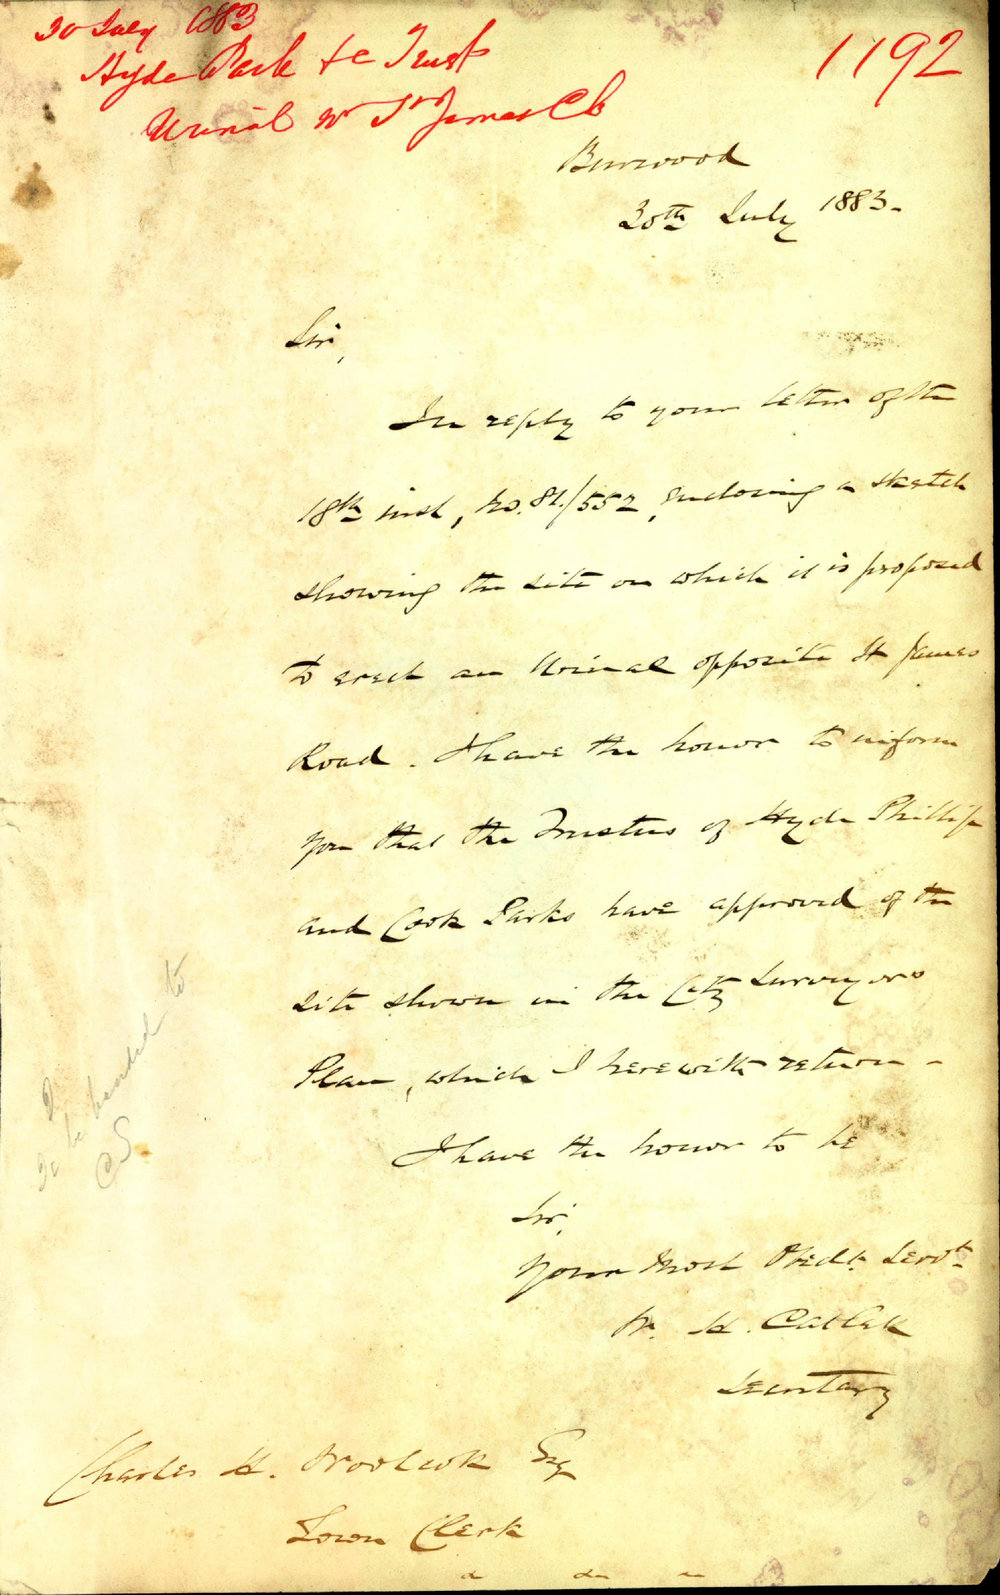 30 July 1883
Hyde Park &c Trust
Urinal nr St James Ch
1192
Burwood
30th July 1883-
Sir,
In reply to your letter of the
18th inst, no. 81./552, enclosing a sketch
showing the site on which it is proposed
to erect an Urinal opposite St James
Road. I have the honor to inform
you that the Trustees of Hyde Phillip
and Cook Parks have approved of the
site shown in the City Surveyors
Plan, which I herewith return-
I have the honor to be
Sir,
Your Most Obedt. Servt.
W. H. Catlett
Secretary
Charles H. Woolcott Esq
Town Clerk
To be handed to
CS